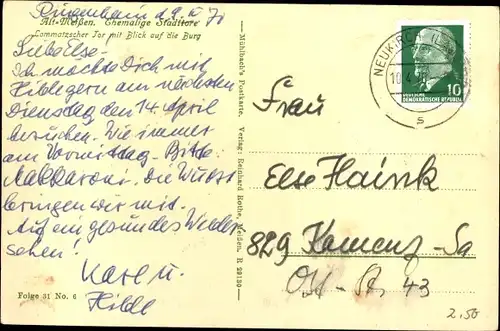 Ringenhain d 9. IV 70
Alt-Meißen. Ehemalige Stadttore
Lommatzscher Tor mit Blick auf die Burg
Liebe Else -
Ich möchte Dich mit
Hildegern am nächsten
Dienstag den 14. April
besuchen. Wie immer
am Vormittag - Bitte
Makkaroni. Die Wurst
bringen wir mit.
Auf ein gesundes Wieder
sehen!
Karl u.
Hilde
Folge 31 No. 6
Mühlbach's Postkarte. Verlag: Reinhard Rothe, Meißen. R 29139
NEUKIRCH
10.4.70
s
DEUTSCHE
DEMOKRATISCHE REPUBLIK
10
Frau
Else Haink
829 Kamenz - Sa
Str 43
2.50